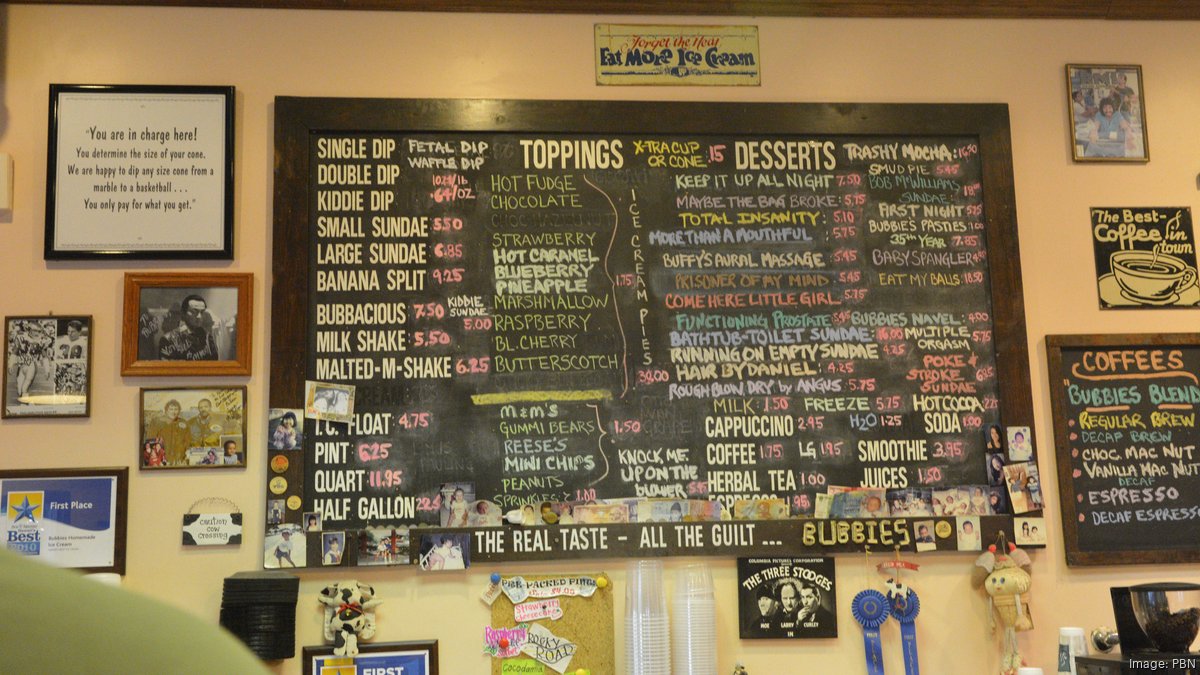 Forget the Heat
Eat More Ice Cream
"You are in charge here!
You determine the size of your cone.
We are happy to dip any size cone from a
marble to a basketball . . .
You only pay for what you get."
SINGLE DIP
FETAL DIP
DOUBLE DIP
WAFFLE DIP
KIDDIE DIP
.64/OZ
SMALL SUNDAE 5.50
LARGE SUNDAE 6.85
BANANA SPLIT 9.25
BUBBACIOUS 7.50
KIDDIE SUNDAE 5.00
MILK SHAKE 5.50
MALTED-M-SHAKE 6.25
FLOAT 4.75
PINT 6.25
QUART 11.95
HALF GALLON
TOPPINGS
X-TRA CUP
OR CONE .15
HOT FUDGE
CHOCOLATE
STRAWBERRY
HOT CARAMEL
BLUEBERRY
PINEAPPLE
MARSHMALLOW
RASPBERRY
BL.CHERRY
BUTTERSCOTCH
1.75
M&M's
GUMMI BEARS
REESE'S
MINI CHIPS
PEANUTS
SPRINKLES 1.00
1.50
ICE CREAM PIES
KNOCK ME
UP ON THE
BLOWER
DESSERTS
KEEP IT UP ALL NIGHT 7.50
MAYBE THE BAG BROKE: 5.75
TOTAL INSANITY: 5.10
MORE THAN A MOUTHFUL : 5.75
BUFFY'S AURAL MASSAGE 5.45
PRISONER OF MY MIND 5.45
COME HERE LITTLE GIRL 5.75
FUNCTIONING PROSTATE
BATHTUB-TOILET SUNDAE
RUNNING ON EMPTY SUNDAE 4.25
HAIR BY DANIEL: 4.25
ROUGH BLOW DRY by ANGUS 5.75
TRASHY MOCHA:
SMUD PIE 5.45
BOB McWILLIAMS
SUNDAE:
FIRST NIGHT
BUBBIE'S PASTIES
35th YEAR
BABY SPANGLER
EAT MY BALLS
BUBBIES NAVEL: 4.00
MULTIPLE
ORGASM 5.75
POKE &
STROKE
SUNDAE
MILK 1.50
FREEZE 5.75
HOT COCOA
CAPPUCCINO 2.45
H2O 1.25
SODA 1.00
COFFEE 1.75
LG 1.95
SMOOTHIE 3.95
HERBAL TEA 1.00
JUICES 1.50
ESPRESSO
THE REAL TASTE - ALL THE GUILT ...
BUBBIES
The Best
Coffee in
town
COFFEES
BUBBIES BLEND
REGULAR BREW
DECAF BREW
CHOC. MAC NUT
VANILLA MAC NUT
DECAF
ESPRESSO
DECAF ESPRESSO
First Place
Best
2010
Bubbies Homemade
Ice Cream
caution
cow
crossing
PRE-PACKED PINTS
STRAWBERRY
CHEESECAKE
ROCKY
ROAD
Cocodamia
COLUMBIA PICTURES CORPORATION
THE THREE STOOGES
MOE LARRY CURLEY
IN
FIRST
Image: PBN